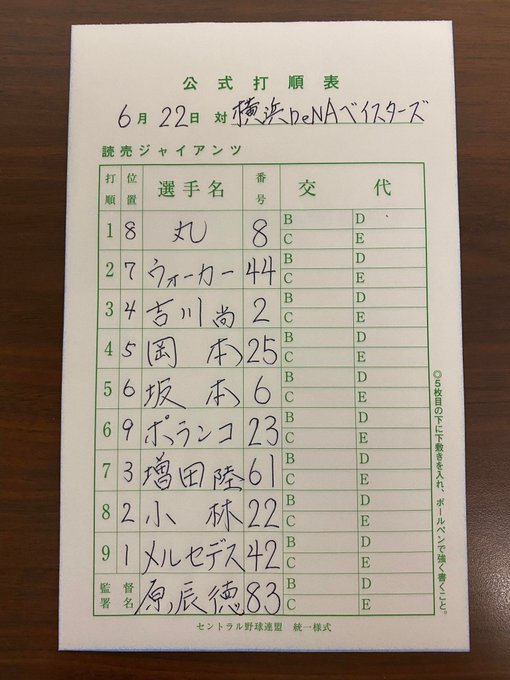 公式打順表
6月22日 対 横浜DeNAベイスターズ
読売ジャイアンツ
打順 位置 選手名 番号 交代
1 8 丸 8 B D C E
2 7 ウォーカー 44 B D C E
3 4 吉川尚 2 B D C E
4 5 岡本 25 B D C E
5 6 坂本 6 B D C E
6 9 ポランコ 23 B D C E
7 3 増田陸 61 B D C E
8 2 小林 22 B D C E
9 1 メルセデス 42 B D C E
監督署名 原辰徳 83 B D C E
セントラル野球連盟 統一様式
◎5枚目の下に下敷きを入れ、ボールペンで強く書くこと。